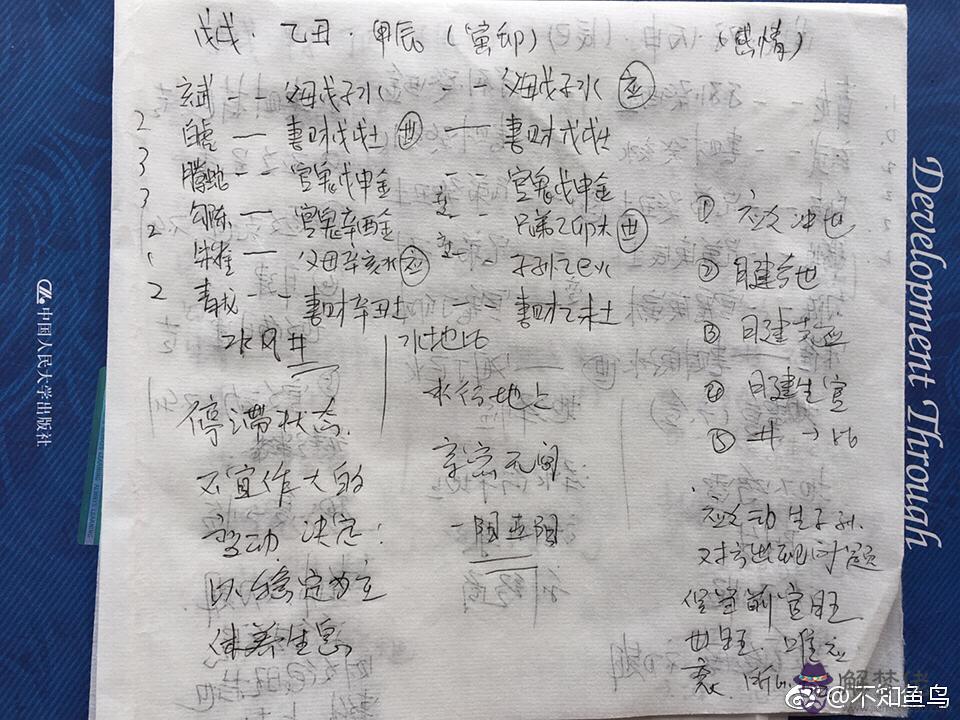 戊戌．乙丑．甲辰（寅卯）（感情）
玄武 -- 父母戊子水 -- 父母戊子水 应
2 白虎 — 妻财戊戌土 世 — 妻财戊戌土
3 腾蛇 -- 官鬼戊申金 -- 官鬼戊申金
3 勾陈 — 官鬼辛酉金 -- 兄弟乙卯木 世
2 朱雀 — 父母辛亥水 应 -- 子孙乙巳火
2 青龙 -- 妻财辛丑土 -- 妻财乙未土
水风井 水地比
停滞状态．
不宜作大的
变动 决定．
以稳定为主
休养生息
水行地上
亲密无间
① 应爻冲世
② 日建合世
③ 日建克应
④ 日建生官
⑤ 井→比
应爻动生子孙．
对方出现问题
但当前官旺
世旺．唯应
衰．所以
中国人民大学出版社
Development Through
@不知鱼鸟